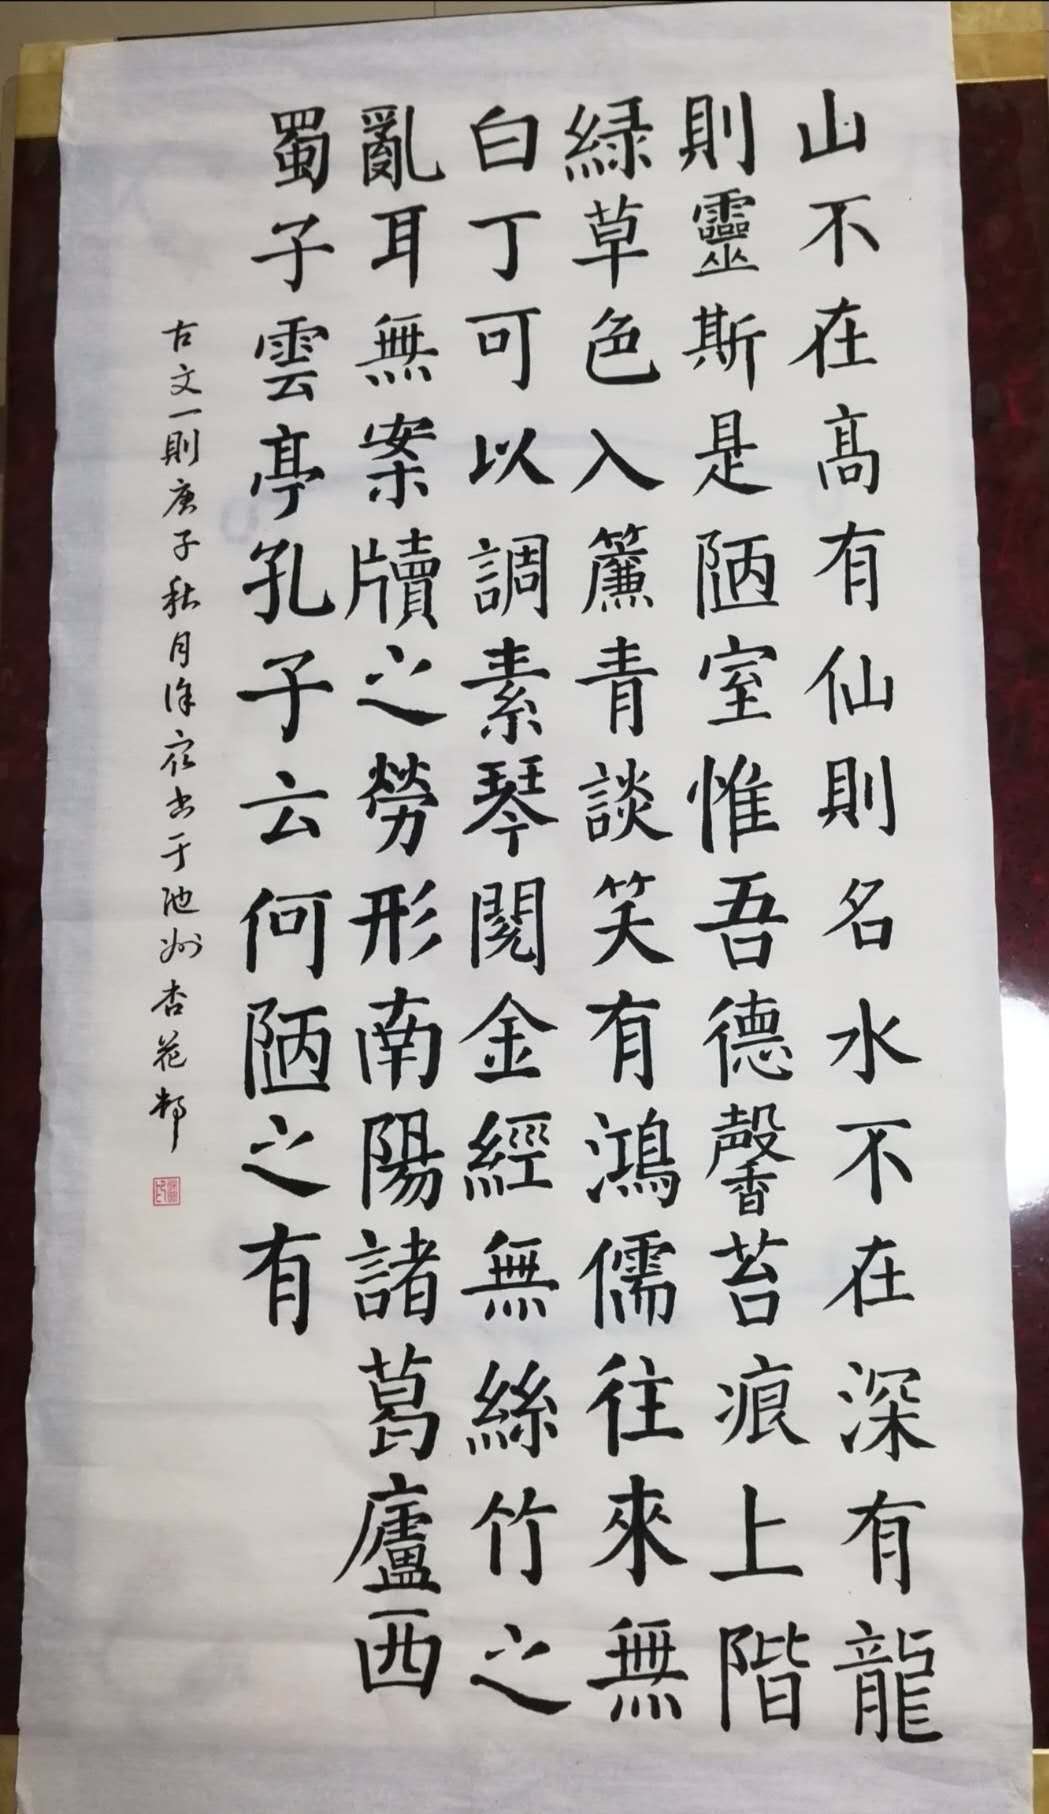 山不在高有仙則名水不在深有龍
則靈斯是陋室惟吾德馨苔痕上階
綠草色入簾青談笑有鴻儒往來無
白丁可以調素琴閱金經無絲竹之
亂耳無案牘之勞形南陽諸葛廬西
蜀子雲亭孔子云何陋之有
古文一則庚子秋月徐宏書于池州杏花邨